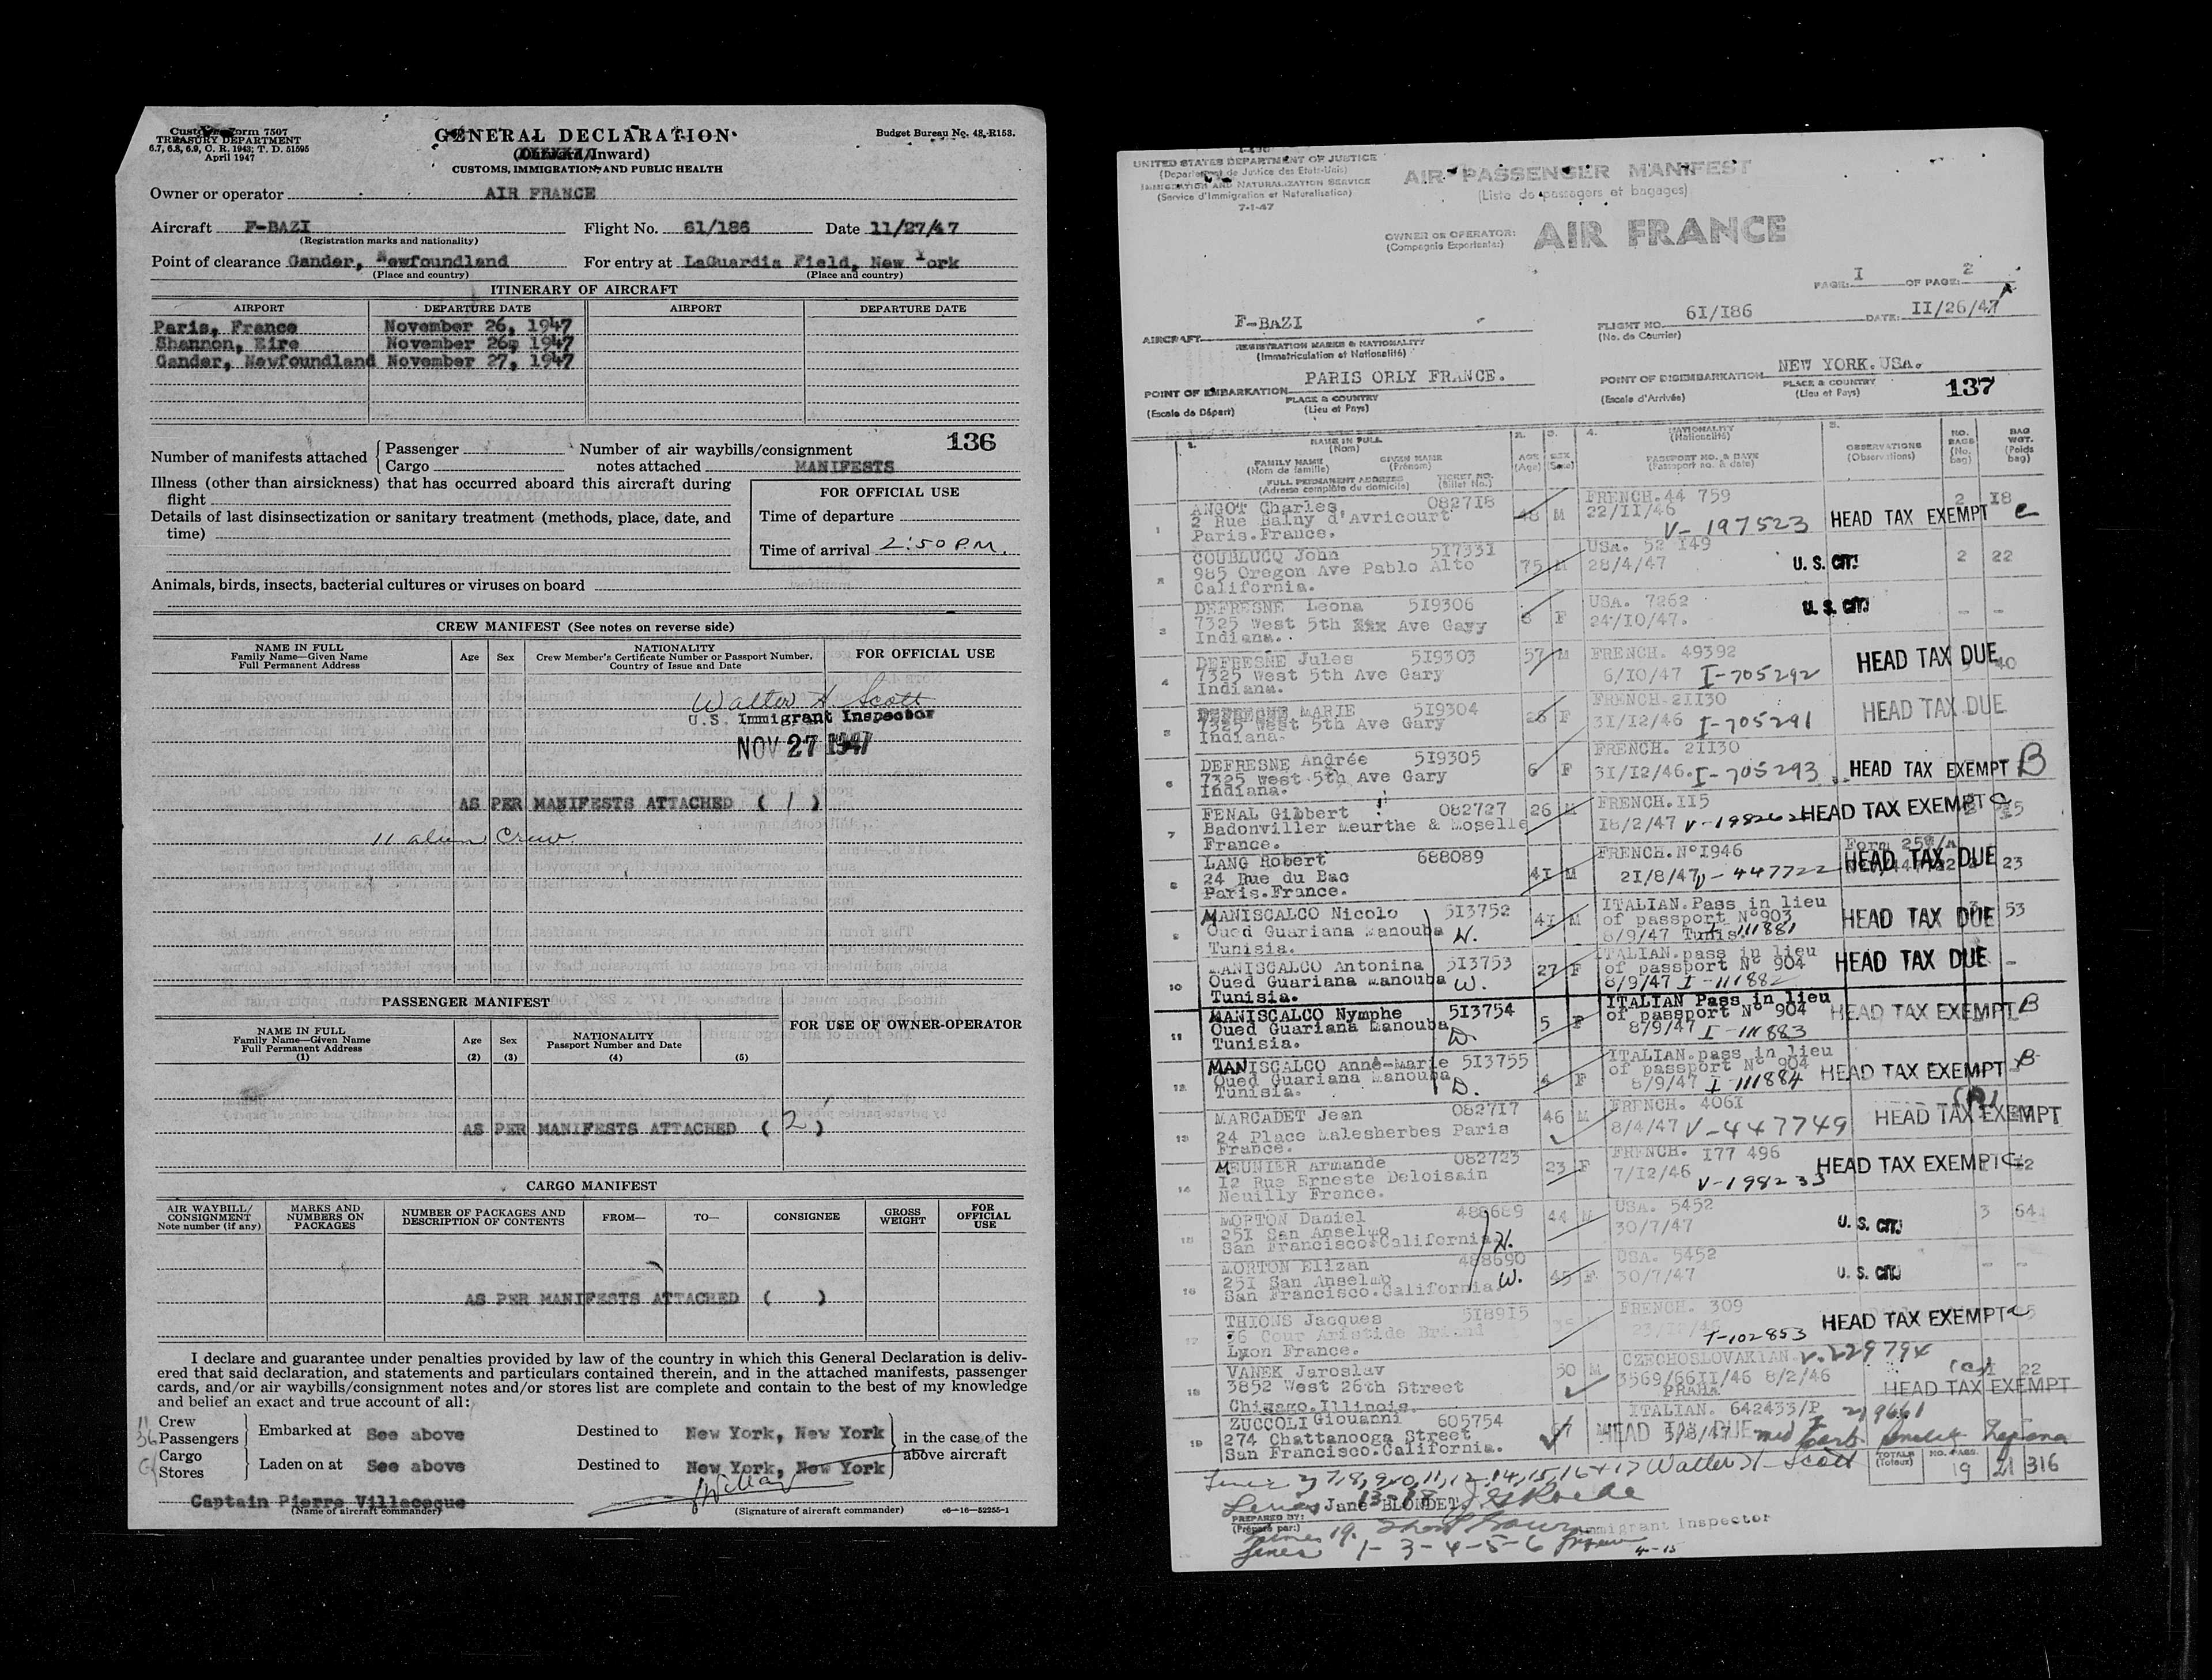 Customs Form 7507
TREASURY DEPARTMENT
6.7, 6.8, 6.9, C. R. 1943; T. D. 51595
April 1947
GENERAL DECLARATION
(Outward/Inward)
CUSTOMS, IMMIGRATION, AND PUBLIC HEALTH
Budget Bureau No. 48-R153.
Owner or operator AIR FRANCE
Aircraft F-BAZI Flight No. 61/186 Date 11/27/47
(Registration marks and nationality)
Point of clearance Gander, Newfoundland For entry at LaGuardia Field, New York
(Place and country) (Place and country)
ITINERARY OF AIRCRAFT
AIRPORT DEPARTURE DATE AIRPORT DEPARTURE DATE
Paris, France November 26, 1947
Shannon, Eire November 26, 1947
Gander, Newfoundland November 27, 1947
136
Number of manifests attached { Passenger Number of air waybills/consignment
Cargo notes attached MANIFESTS
Illness (other than airsickness) that has occurred aboard this aircraft during
flight
Details of last disinsectization or sanitary treatment (methods, place, date, and
time)
FOR OFFICIAL USE
Time of departure
Time of arrival 2:50 P.M.
Animals, birds, insects, bacterial cultures or viruses on board
CREW MANIFEST (See notes on reverse side)
NAME IN FULL
Family Name—Given Name
Full Permanent Address
Age Sex
NATIONALITY
Crew Member's Certificate Number or Passport Number,
Country of Issue and Date
FOR OFFICIAL USE
Walter H. Scott
U.S. Immigrant Inspector
NOV 27 1947
AS PER MANIFESTS ATTACHED ( 1 )
11 alien Crew.
PASSENGER MANIFEST
NAME IN FULL
Family Name—Given Name
Full Permanent Address
(1)
Age
(2)
Sex
(3)
NATIONALITY
Passport Number and Date
(4) (5)
FOR USE OF OWNER-OPERATOR
AS PER MANIFESTS ATTACHED ( 2 )
CARGO MANIFEST
AIR WAYBILL/
CONSIGNMENT
Note number (if any)
MARKS AND
NUMBERS ON
PACKAGES
NUMBER OF PACKAGES AND
DESCRIPTION OF CONTENTS
FROM— TO— CONSIGNEE
GROSS
WEIGHT
FOR
OFFICIAL
USE
AS PER MANIFESTS ATTACHED ( )
I declare and guarantee under penalties provided by law of the country in which this General Declaration is deliv-
ered that said declaration, and statements and particulars contained therein, and in the attached manifests, passenger
cards, and/or air waybills/consignment notes and/or stores list are complete and contain to the best of my knowledge
and belief an exact and true account of all:
11 Crew
36 Passengers
Embarked at See above Destined to New York, New York
in the case of the
above aircraft
Cargo
Stores
Laden on at See above Destined to New York, New York
Captain Pierre Villaceque
(Name of aircraft commander) (Signature of aircraft commander) c6—16—52255-1
UNITED STATES DEPARTMENT OF JUSTICE
(Departement de Justice des Etats-Unis)
IMMIGRATION AND NATURALIZATION SERVICE
(Service d'Immigration et Naturalisation)
7-1-47
AIR PASSENGER MANIFEST
(Liste de passagers et bagages)
OWNER OR OPERATOR: AIR FRANCE
(Compagnie Exportante:)
PAGE: I OF PAGE: 2
AIRCRAFT F-BAZI
REGISTRATION MARKS & NATIONALITY
(Immatriculation et Nationalité)
FLIGHT NO. 61/I86 DATE: II/26/47
(No. de Courrier)
POINT OF EMBARKATION PARIS ORLY FRANCE.
PLACE & COUNTRY
(Escale de Départ) (Lieu et Pays)
POINT OF DISEMBARKATION NEW YORK.USA.
PLACE & COUNTRY
(Escale d'Arrivée) (Lieu et Pays)
137
1. NAME IN FULL
(Nom)
FAMILY NAME GIVEN NAME
(Nom de famille) (Prénom)
FULL PERMANENT ADDRESS TICKET NO.
(Adresse complète du domicile) (Billet No.)
2. AGE
(Age)
3. SEX
(Sexe)
4. NATIONALITY
(Nationalité)
PASSPORT NO. & DATE
(Passeport no. & date)
5. OBSERVATIONS
(Observations)
NO. BAGS
(No. bag)
BAG WGT.
(Poids bag)
1 ANGOT Charles 082718 48 M FRENCH.44 759 2 18
2 Rue Balny d'Avricourt 22/II/46 HEAD TAX EXEMPT C
Paris.France. V-197523
2 COUBLUCQ John 517331 75 M USA. 52 I49 2 22
985 Oregon Ave Pablo Alto 28/4/47 U. S. CIT.
California.
3 DEFRESNE Leona 5I9306 F USA. 7262 - -
7325 West 5th Ave Gary 24/I0/47. U. S. CIT.
Indiana.
4 DEFRESNE Jules 5I9303 57 M FRENCH. 49392 40
7325 West 5th Ave Gary 6/I0/47 I-705292 HEAD TAX DUE
Indiana.
5 DEFRESNE MARIE 5I9304 F FRENCH.2II30
7325 West 5th Ave Gary 3I/I2/46 I-705291 HEAD TAX DUE
Indiana.
6 DEFRESNE Andrée 5I9305 6 F FRENCH. 2II30
7325 West 5th Ave Gary 3I/I2/46. I-705293 HEAD TAX EXEMPT B
Indiana.
7 FENAL Gibbert 082727 26 M FRENCH.II5
Badonviller Meurthe & Moselle I8/2/47 HEAD TAX EXEMPT C
France.
8 LANG Robert 688089 4I M FRENCH.N°I946
24 Rue du Bac 2I/8/47 V-447722 HEAD TAX DUE 23
Paris.France.
9 MANISCALCO Nicolo 5I3752 4I M ITALIAN.Pass in lieu 53
Oued Guariana Manouba H. of passport N°903 HEAD TAX DUE
Tunisia. 8/9/47 Tunis. I-111881
10 MANISCALCO Antonina 5I3753 27 F ITALIAN.pass in lieu -
Oued Guariana Manouba W. of passport N° 904 HEAD TAX DUE
Tunisia. 8/9/47 I-111882
11 MANISCALCO Nymphe 5I3754 5 F ITALIAN Pass in lieu
Oued Guariana Manouba D. of passport N° 904 HEAD TAX EXEMPT B
Tunisia. 8/9/47 I-111883
12 MANISCALCO Anne-Marie 5I3755 4 F ITALIAN.pass in lieu
Oued Guariana Manouba D. of passport N° 904 HEAD TAX EXEMPT B
Tunisia. 8/9/47 I-111884
13 MARCADET Jean 0827I7 46 M FRENCH. 406I
24 Place Malesherbes Paris 8/4/47 V-447749 HEAD TAX EXEMPT
France.
14 MEUNIER Armande 082723 23 F FRENCH. I77 496
I2 Rue Erneste Deloisain 7/I2/46 V-198233 HEAD TAX EXEMPT C
Neuilly France.
15 MORTON Daniel 488689 44 M USA. 5452 3 64
25I San Anselmo 30/7/47 U. S. CIT.
San Francisco.California. H.
16 MORTON Elizan 488690 45 F USA. 5452 - -
25I San Anselmo 30/7/47 U. S. CIT.
San Francisco.California. W.
17 THIONS Jacques 5I89I5 FRENCH. 309
Cour Aristide Briand T-102853 HEAD TAX EXEMPT C
Lyon France.
18 VANEK Jaroslav 50 M CZECHOSLOVAKIAN. V-229794
3852 West 26th Street 3569/66II/46 8/2/46 (C) I 22
Chicago.Illinois. PRAHA HEAD TAX EXEMPT
19 ZUCCOLI Giouanni 605754 ITALIAN. 642433/P
274 Chattanooga Street HEAD TAX DUE
San Francisco.California.
TOTALS
(Totaux)
NO. PASS.
19 21 316
Walter H. Scott
Lines 13-18
Jane BLONDET.
PREPARED BY:
(Préparé par:)
Immigrant Inspector
Lines 19.
Lines 1-3-4-5-6